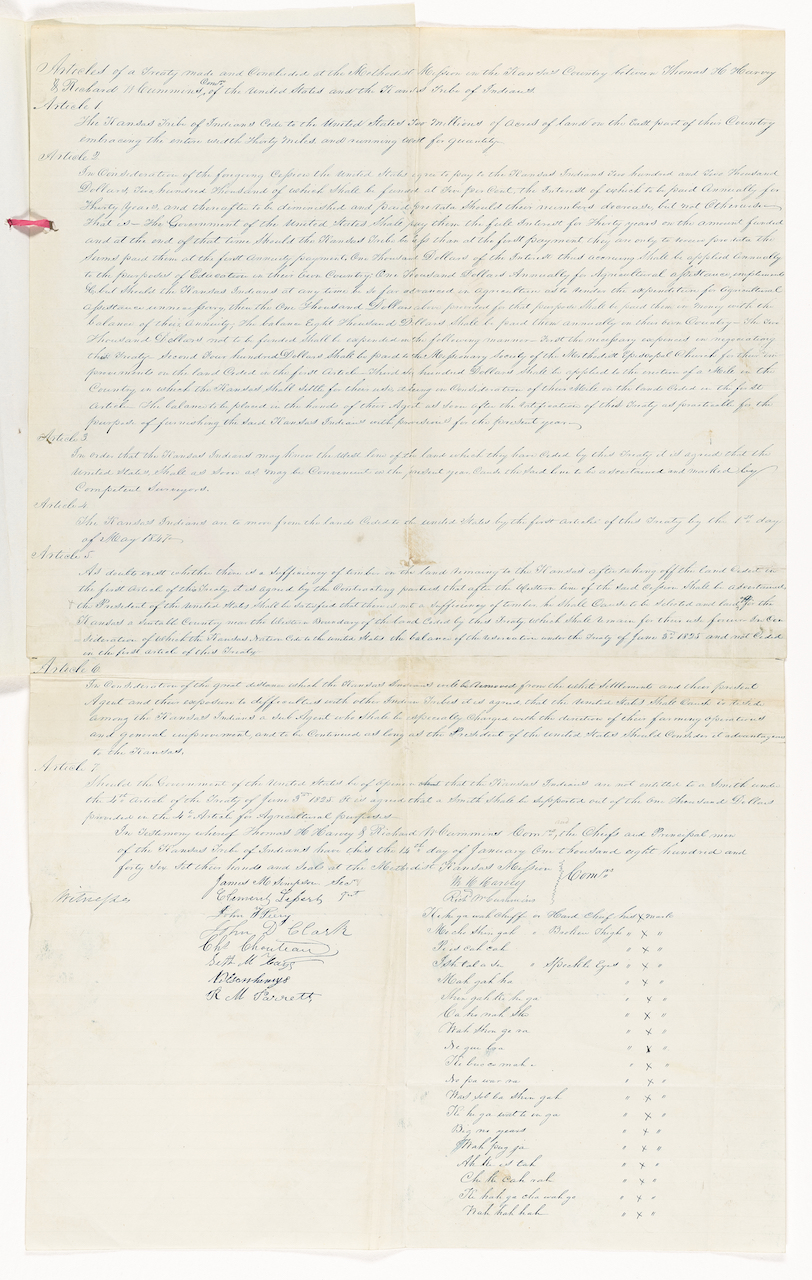 Articles of a Treaty made and Concluded at the Methodist Mission in the Kansas Country between Thomas H Harvey
& Richard W Cummins, Comrs, of the United States and the Kansas Tribe of Indians
Article 1
The Kansas Tribe of Indians Cede to the United States Two Millions of Acres of land on the East part of their Country
embracing the entire width Thirty Miles and running West for quantity
Article 2
In Consideration of the foregoing Cession the United States agree to pay to the Kansas Indians Two hundred and Two Thousand
Dollars, Two hundred Thousand of which Shall be funded at Five per Cent, the Interest of which to be paid Annually for
Thirty Years, and thereafter to be diminished and paid pro rata Should their numbers decrease, but not Otherwise
That is - The Government of the United States Shall pay them the full Interest for Thirty years on the amount funded
and at the end of that time Should the Kansas Tribe be less than at the first payment they are only to receive pro rata the
Sums paid them at the first Annuity payment. One Thousand Dollars of the Interest thus accruing Shall be applied Annually
to the purposes of Education in their own Country; One Thousand Dollars Annually for Agricultural assistance, implements
&c but Should the Kansas Indians at any time be so far advanced in Agriculture as to render the expenditure for Agricultural
assistance unnecessary, then the One Thousand Dollars above provided for that purpose Shall be paid them in money with the
balance of their Annuity; The balance Eight Thousand Dollars Shall be paid them annually in their own Country - The two
Thousand Dollars not to be funded Shall be expended in the following manner - First the necessary expenses in negotiating
this Treaty. Second Four hundred Dollars Shall be paid to the Missionary Society of the Methodist Episcopal Church for their im-
provements on the land Ceded in the first Article. Third Six hundred Dollars Shall be applied to the erection of a Mill in the
Country in which the Kansas Shall settle for their use it being in Consideration of their Mill on the lands Ceded in the first
Article. The balance to be placed in the hands of their Agent as soon after the ratification of this Treaty as practicable for the
purpose of furnishing the said Kansas Indians with provisions for the present year
Article 3
In order that the Kansas Indians may know the West line of the land which they have Ceded by this Treaty it is agreed that the
United States Shall as soon as may be Convenient in the present year Cause the Said line to be ascertained and marked by
Competent Surveyors.
Article 4
The Kansas Indians are to move from the lands Ceded to the United States by the first Article of this Treaty by the 1st day
of May 1847
Article 5
As doubts exist whether there is a Sufficiency of timber on the land remaining to the Kansas after taking off the land Ceded in
the first Article of this Treaty, it is agreed by the Contracting parties that after the Western line of the Said Cession Shall be ascertained
the President of the United States Shall be Satisfied that there is not a Sufficiency of timber, he Shall Cause to be Selected and laid off for the
Kansas a Suitable Country near the Western Boundary of the land Ceded by this Treaty, which Shall remain for their use forever. In Con-
sideration of which the Kansas Nation Cede to the United States the balance of the reservation under the Treaty of June 3d 1825 and not Ceded
in the first article of this Treaty.
Article 6
In Consideration of the great distance which the Kansas Indians will be Removed from the white Settlements and their present
Agent and their exposure to difficulties with other Indian Tribes it is agreed that the United States Shall Cause to reside
among the Kansas Indians a Sub Agent who Shall be especially Charged with the direction of their farming operations
and general improvement, and to be Continued as long as the President of the United States Should Consider it advantageous
to the Kansas.
Article 7
Should the Government of the United States be of Opinion that the Kansas Indians are not entitled to a Smith under
the 4th Article of the Treaty of June 3rd 1825. It is agreed that a Smith Shall be Supported out of the One Thousand Dollars
provided in the 4th Article for Agricultural purposes
In Testimony whereof Thomas H Harvey & Richard W Cummins Comrs, the Chiefs and Principal men
of the Kansas Tribe of Indians have this the 14th day of January One thousand eight hundred and
forty Six Set their hands and Seals at the Methodist Kansas Mission
Th H Harvey Comrs
Richd W Cummins
Witnesses
James M Simpson Secy
Clement Lessert Int
John T Peery
John D Clark
Chs Chouteau
Seth M Hays
Nelson Henrys
R M Parrett
Ki he ga wah chuffe or Hard Chief his X mark
Me chi Shin gah " Broken Thigh " X "
Pi is cah cah " X "
Ish tal a sa " Speckle Eyes " X "
Mah gah ha " X "
Shin gah Ki he ga " X "
Ca ho nah She " X "
Wah Shun ge ra " X "
Ne qui bra " X "
Ke bucco mah e " X "
No pa war ra " X "
Was sol ba Shin gah " X "
Ki he ga wat te in ga " X "
Big no years " X "
Wah pug ja " X "
Ah Ke is tah " X "
Chi Ke cah rah " X "
Ke hah ga cha wah go " X "
Wah hah hah " X "